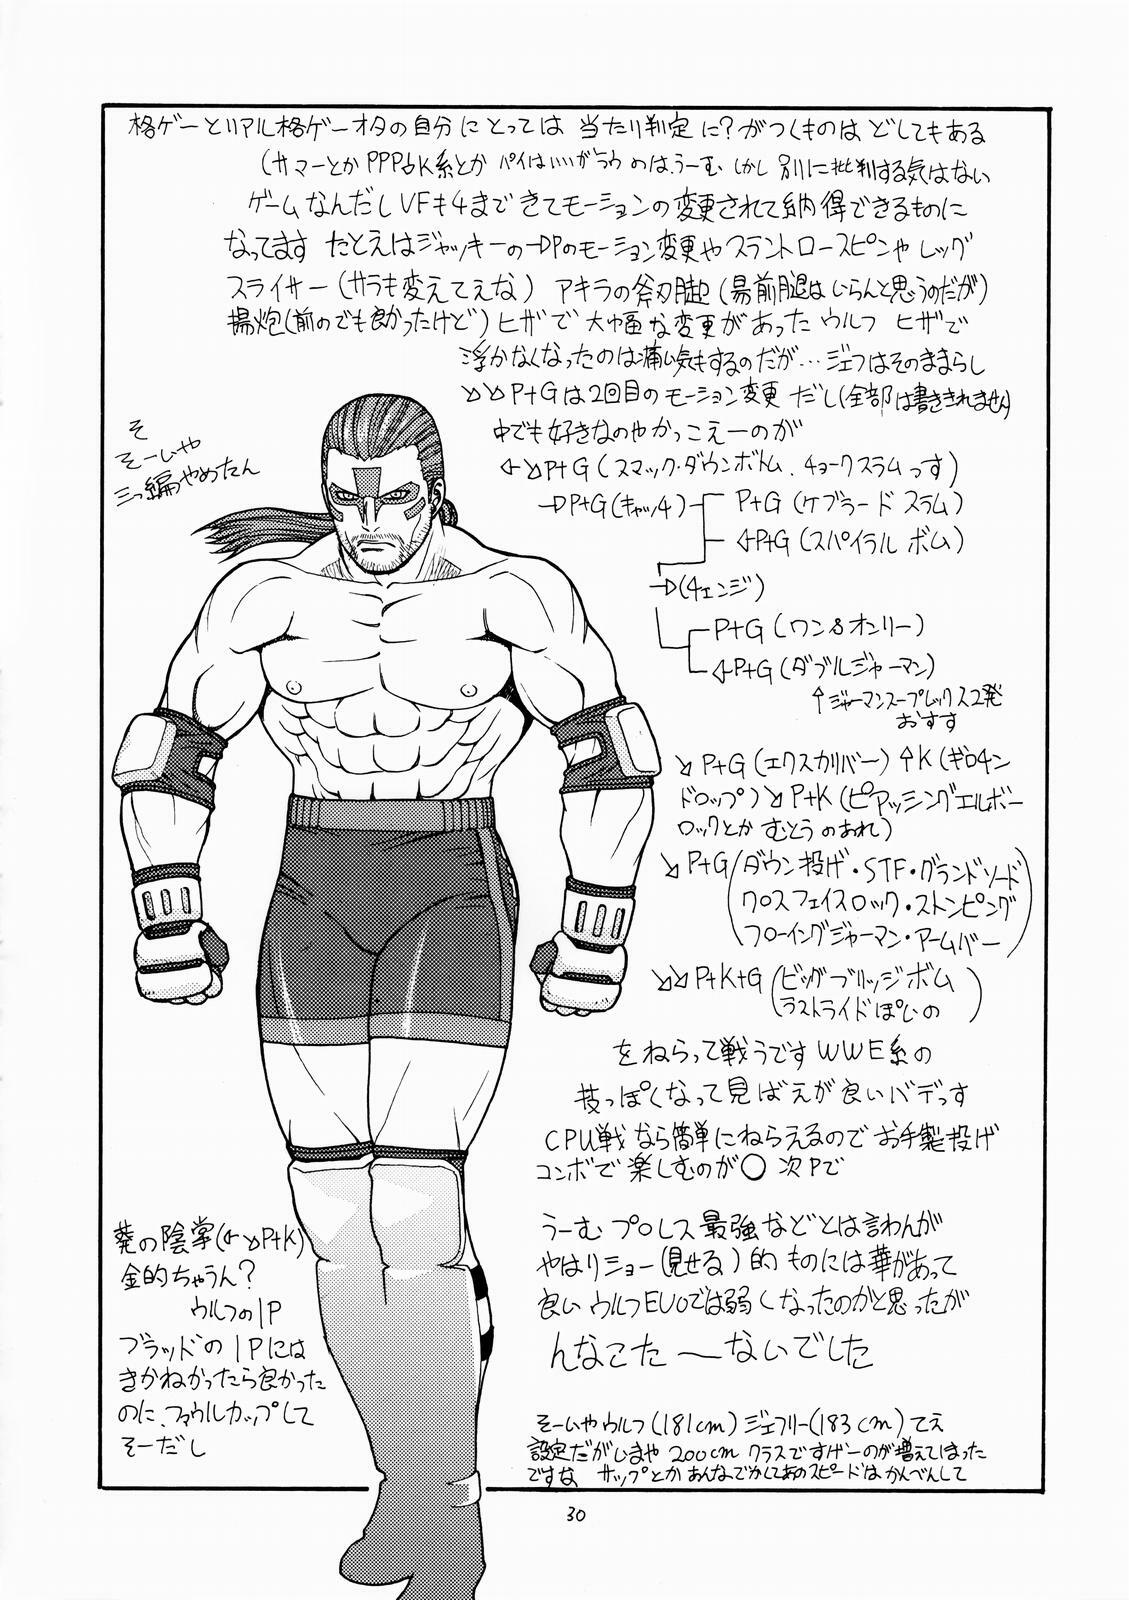 格ゲーとリアル格ゲーオタの自分にとっては 当たり判定に?がつくものは どしてもある
(サマーとか PPP↓K系とか パイはいいが ラウのは、うーむ しかし 別に批判する気はない
ゲームなんだし VFも4まできてモーションの変更されて納得できるものに
なってます たとえばジャッキーの→Pのモーション変更や スラントロースピンや レッグ
スライサー(サラも変えてえな) アキラの斧刃脚(昜前腿はいらんと思うのだが)
揚炮(前のでも良かったけど) ヒザで 大幅な変更があった ウルフ ヒザで
浮かなくなったのは痛い気もするのだが… ジェフはそのままらし
↘↘P+Gは2回目のモーション変更 だし(全部は書ききれません)
中でも好きなのやかっこえーのが
そ
そーいや
三つ編やめたん
←↘P+G(スマック・ダウンボトム、チョークスラムっす)
→P+G(キャッチ)
P+G(ケブラード スラム)
←P+G(スパイラル ボム)
→(チェンジ)
P+G(ワン&オンリー)
←P+G(ダブルジャーマン)
↑ジャーマンスープレックス2発
おすす
↘P+G(エクスカリバー)↑K(ギロチン
ドロップ)↘P+K(ピアッシングエルボー
ロックとか むとうのあれ)
↘P+G(ダウン投げ・STF・グランドソード
クロスフェイスロック・ストンピング
フローイングジャーマン・アームバー)
↘↘P+K+G(ビッグブリッジボム
ラストライドぽいの)
をねらって戦うです WWE系の
技っぽくなって見ばえが良いバデっす
CPU戦なら簡単にねらえるので お手製投げ
コンボで楽しむのが○ 次Pで
葵の陰掌(←↘P+K)
金的ちゃうん?
ウルフの1P
ブラッドの1Pには
きかねかったら良かった
のに、ファウルカップして
そーだし
うーむ プロレス最強などとは言わんが
やはりショー(見せる)的ものには華があって
良い ウルフEVOでは弱くなったのかと思ったが
んなこた〜ないでした
そーいやウルフ(181cm)ジェフリー(183cm)てえ
設定だがいまや 200cm クラスですげーのが増えてしまった
ですな サップとか あんなでかしてあのスピードはかんべんして
30